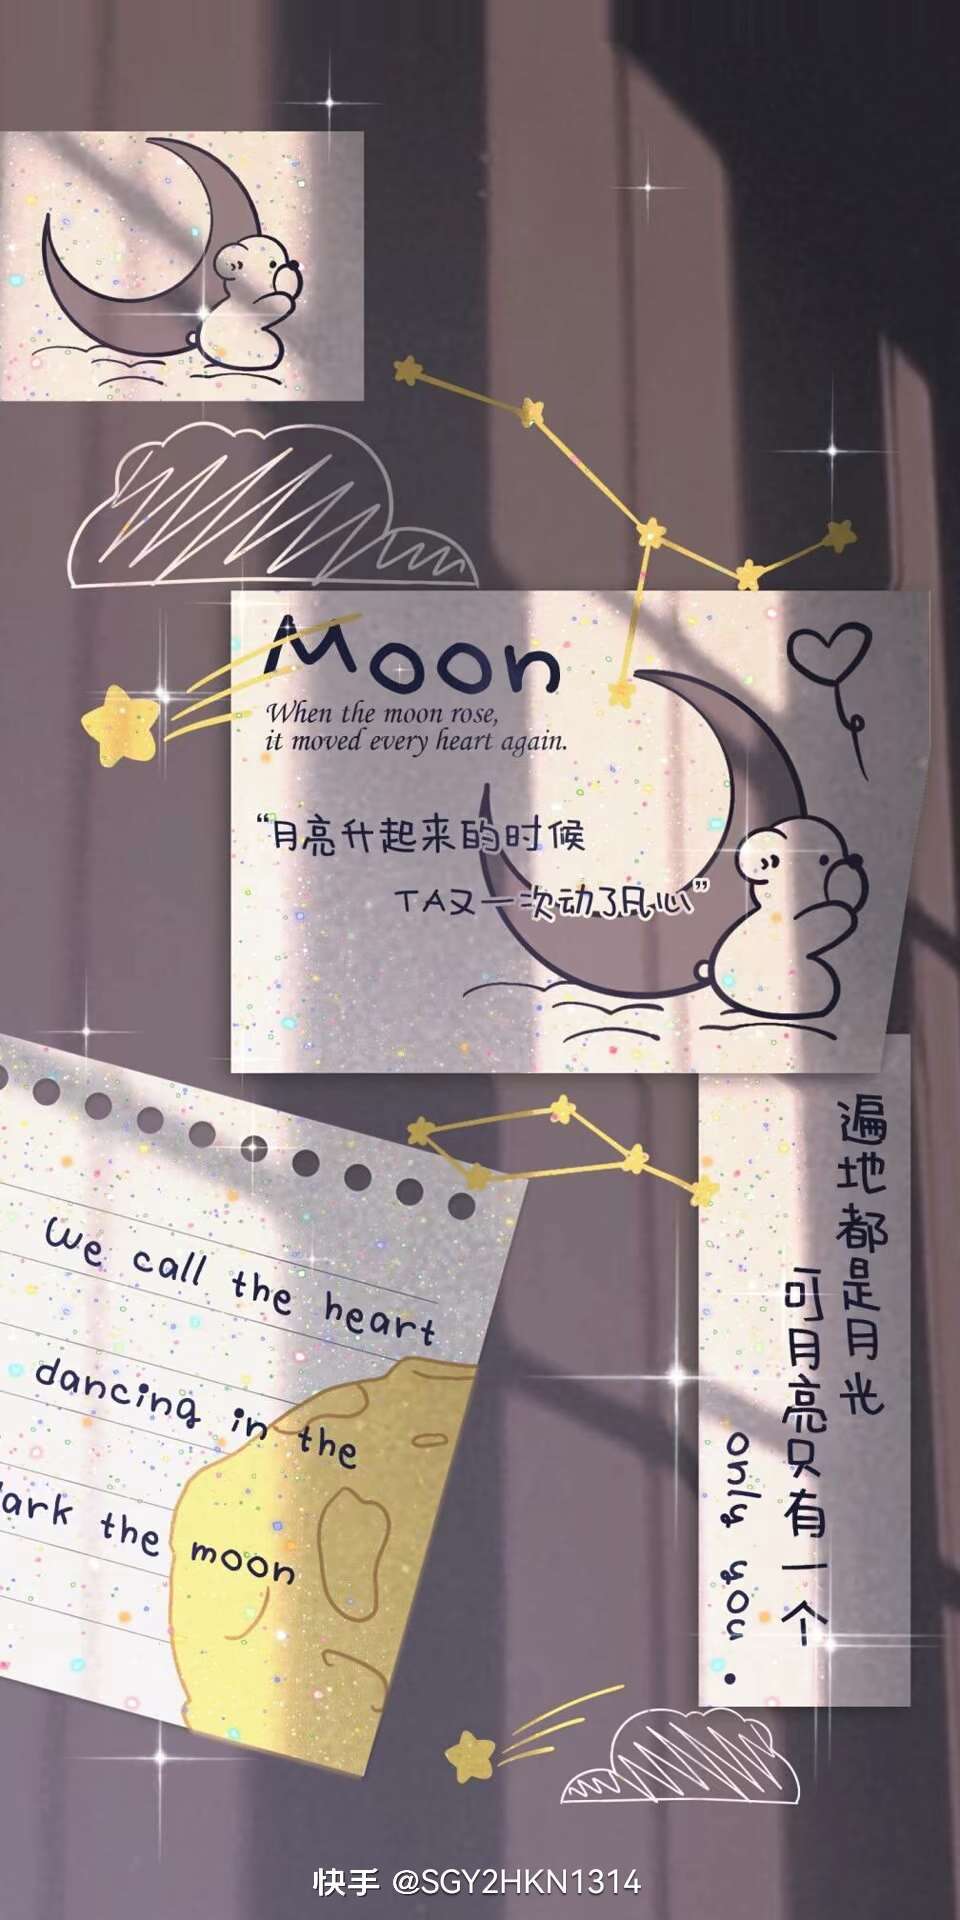 Moon
When the moon rose,
it moved every heart again.
“月亮升起来的时候
TA又一次动了凡心”
遍地都是月光
可月亮只有一个
only you.
We call the heart
dancing in the
dark the moon
快手 @SGY2HKN1314